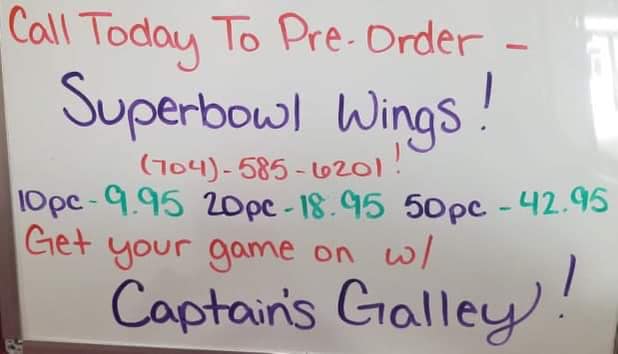 Call Today To Pre-Order -
Superbowl Wings!
(704)-585-6201!
10pc-9.95 20pc-18.95 50pc-42.95
Get your game on w/
Captain's Galley!